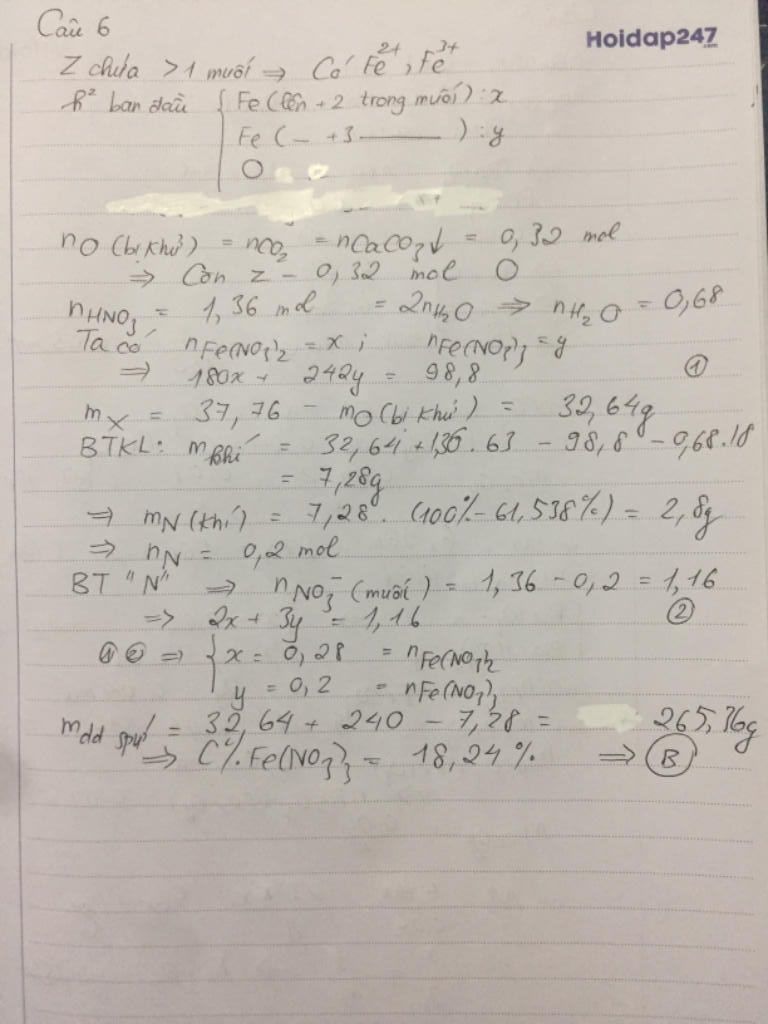 Câu 6
Hoidap247
.com
Z chứa >1 muối => Có Fe²⁺, Fe³⁺
h² ban đầu { Fe (lên +2 trong muối) : x
Fe ( — +3 ——— ) : y
O
nO (bị khử) = nCO₂ = nCaCO₃↓ = 0,32 mol
=> Còn z - 0,32 mol O
nHNO₃ = 1,36 mol = 2nH₂O => nH₂O = 0,68
Ta có nFe(NO₃)₂ = x ; nFe(NO₃)₃ = y
=> 180x + 242y = 98,8 ①
mX = 37,76 - mO (bị khử) = 32,64g
BTKL: m khí = 32,64 + 1,36.63 - 98,8 - 0,68.18
= 7,28g
=> mN (khí) = 7,28 . (100% - 61,538%) = 2,8g
=> nN = 0,2 mol
BT "N" => nNO₃⁻ (muối) = 1,36 - 0,2 = 1,16
=> 2x + 3y = 1,16 ②
①② => { x = 0,28 = nFe(NO₃)₂
y = 0,2 = nFe(NO₃)₃
mdd spư = 32,64 + 240 - 7,28 = 265,36g
=> C%Fe(NO₃)₃ = 18,24% => B